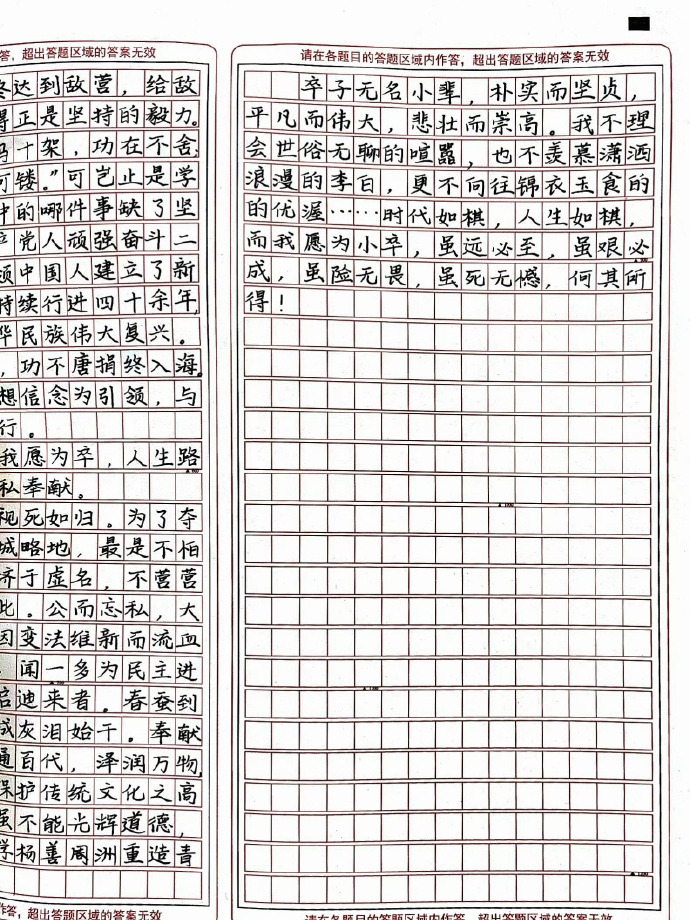 答，超出答题区域的答案无效
达到敌营，给敌
正是坚持的毅力。
十架，功在不舍；
镂。”可岂止是学
中的哪件事缺了坚
党人顽强奋斗二
领中国人建立了新
持续行进四十余年，
华民族伟大复兴。
，功不唐捐终入海。
想信念为引领，与
行。
我愿为卒，人生路
私奉献。
视死如归。为了夺
城略地，最是不怕
济于虚名，不营营
此。公而忘私，大
因变法维新而流血
，闻一多为民主进
启迪来者。春蚕到
成灰泪始干。奉献
通百代，泽润万物，
保护传统文化之高
虽不能光辉道德，
学杨善洲重造青
作答，超出答题区域的答案无效
请在各题目的答题区域内作答，超出答题区域的答案无效
卒子无名小辈，朴实而坚贞，
平凡而伟大，悲壮而崇高。我不理
会世俗无聊的喧嚣，也不羡慕潇洒
浪漫的李白，更不向往锦衣玉食的
的优渥……时代如棋，人生如棋，
而我愿为小卒，虽远必至，虽艰必
成，虽险无畏，虽死无憾，何其所
得！
请在各题目的答题区域内作答，超出答题区域的答案无效